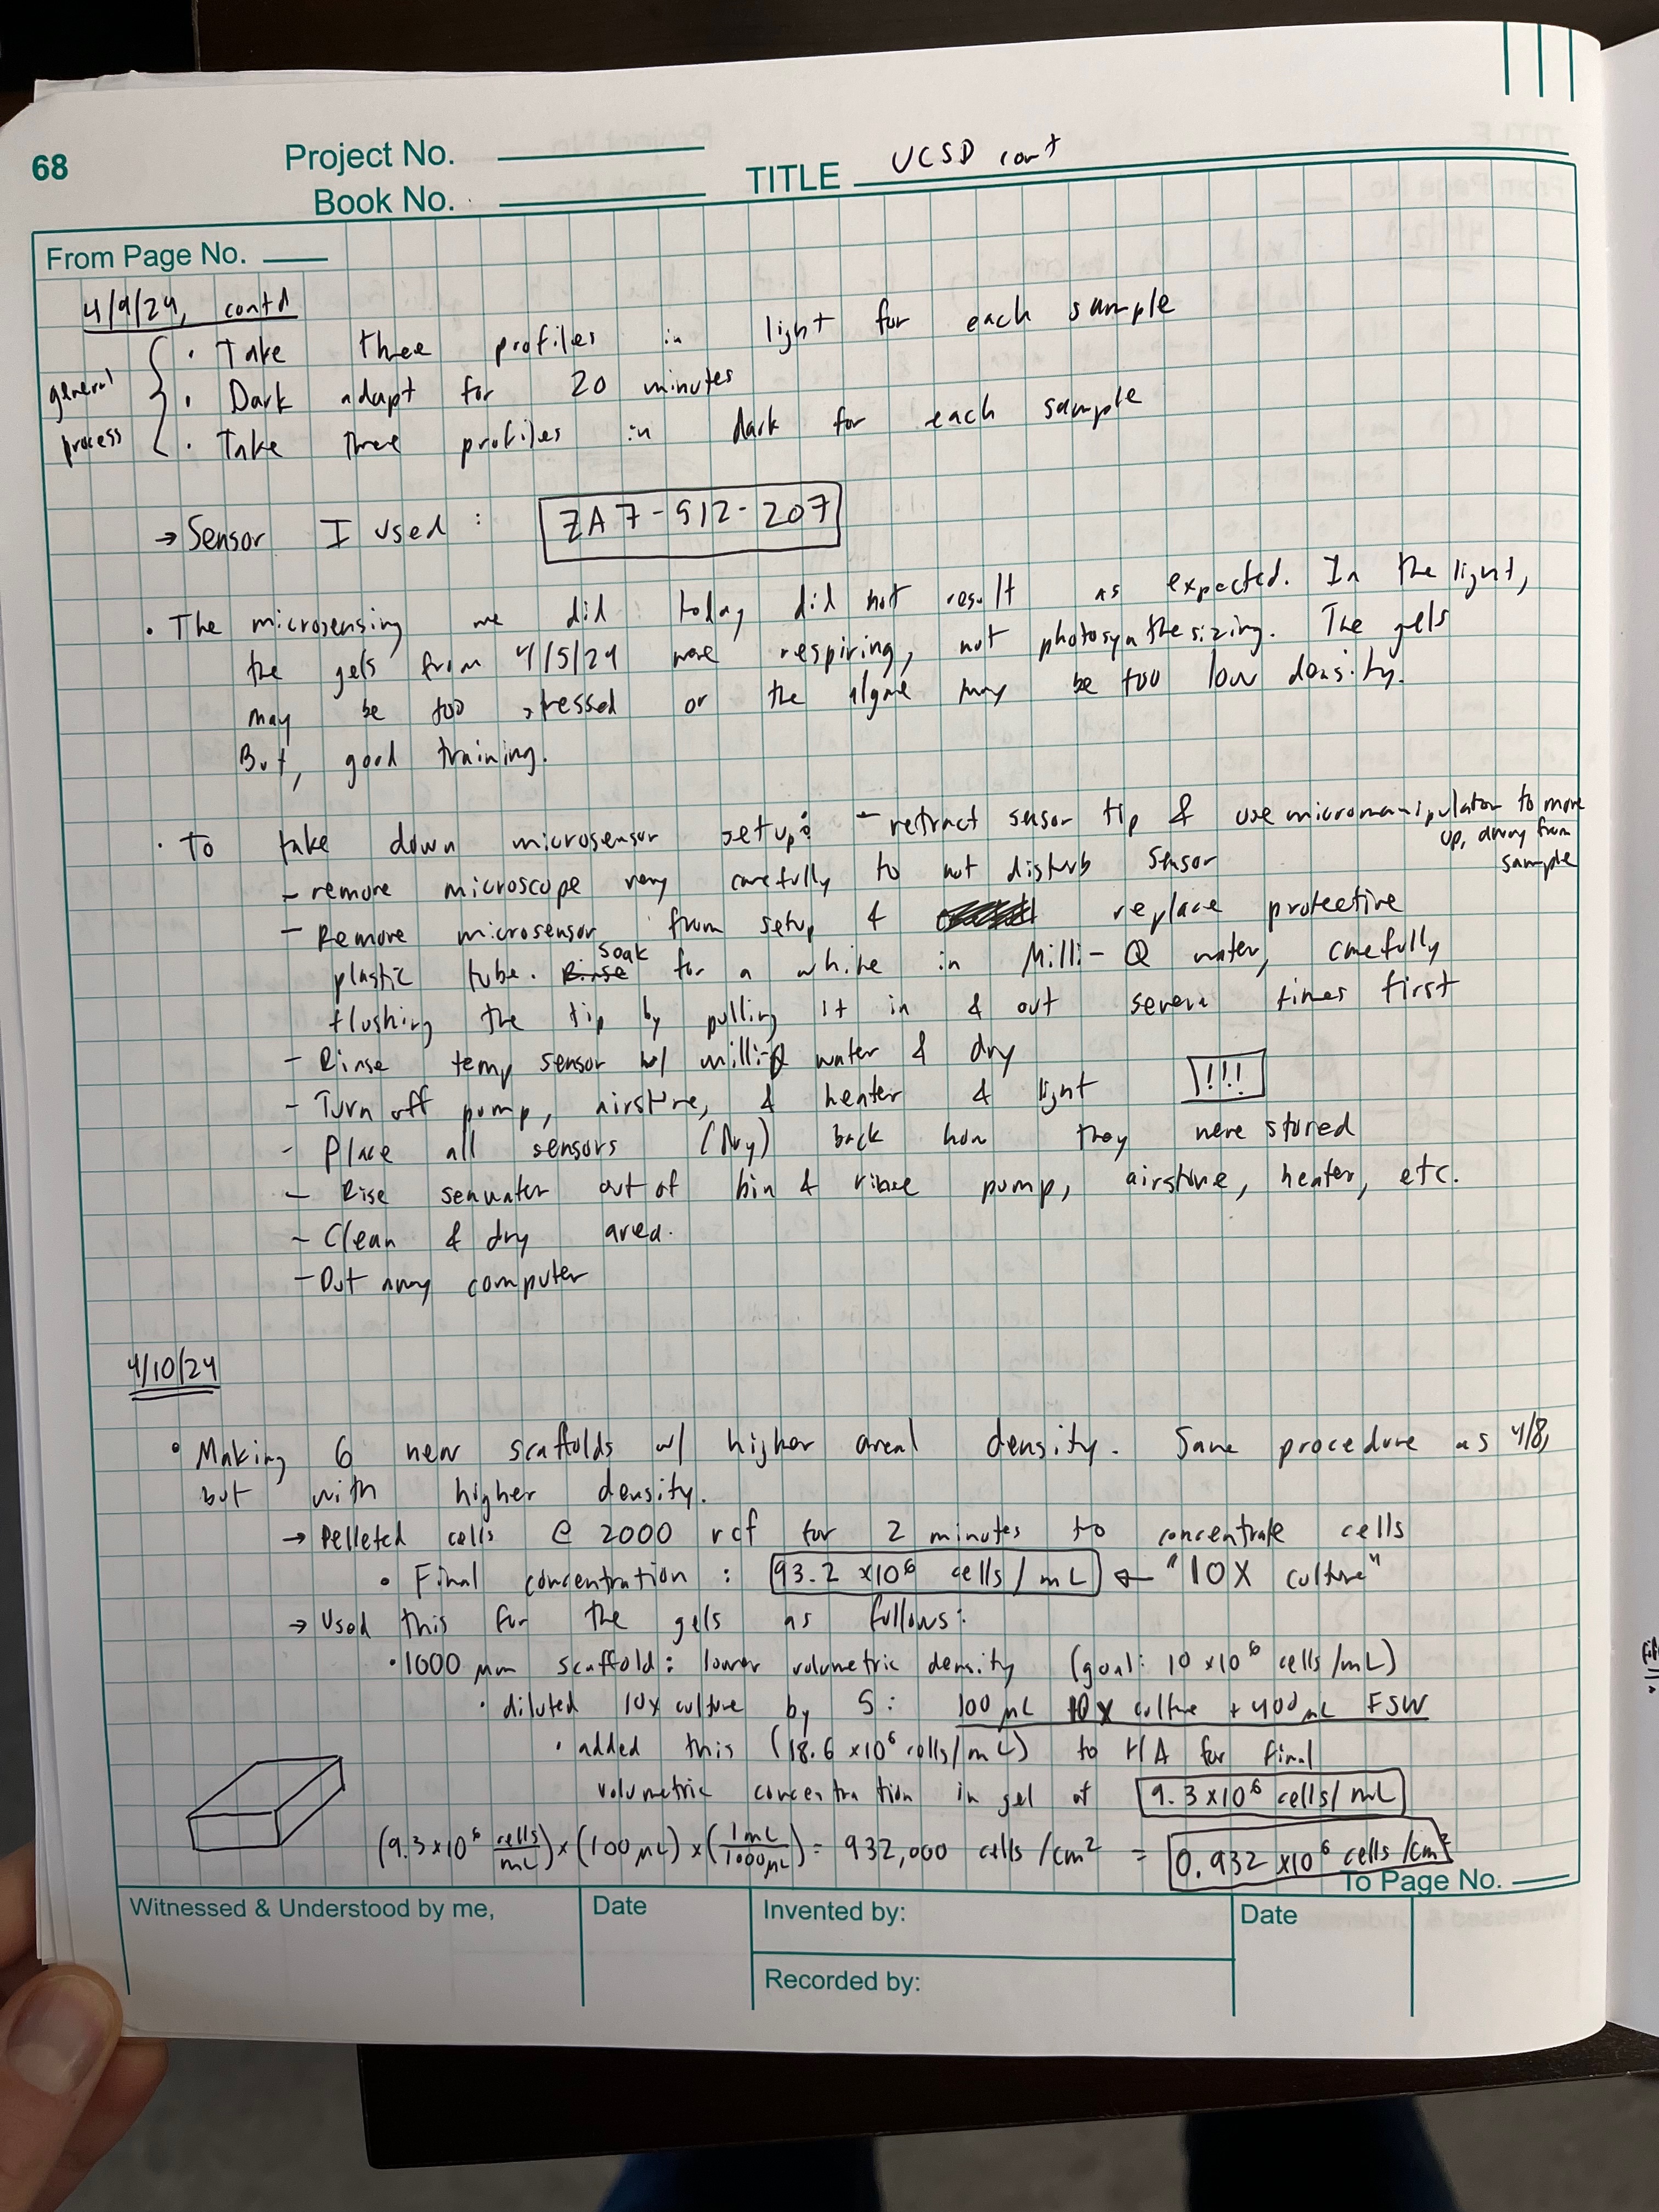 68
Project No.
Book No.
TITLE UCSD cont
From Page No.
4/9/24, contd
general process
· Take three profiles in light for each sample
· Dark adapt for 20 minutes
· Take three profiles in dark for each sample
→ Sensor I used : ZA7-512-207
· The microsensing we did today did not result as expected. In the light,
the gels from 4/5/24 were respiring, not photosynthesizing. The gels
may be too stressed or the algae may be too low density.
But, good training.
· To take down microsensor setup: - retract sensor tip & use micromanipulator to move
up, away from
sample
- remove microscope very carefully to not disturb sensor
- Remove microsensor from setup & replace protective
plastic tube. Rinse soak for a while in Milli-Q water, carefully
flushing the tip by pulling it in & out several times first
- Rinse temp sensor w/ milli-Q water & dry
- Turn off pump, airstone, & heater & light !!!
- Place all sensors (Dry) back how they were stored
- Rise seawater out of bin & rinse pump, airstone, heater, etc.
- Clean & dry area.
- Put away computer
4/10/24
· Making 6 new scaffolds w/ higher areal density. Same procedure as 4/8,
but with higher density.
→ Pelleted cells @ 2000 rcf for 2 minutes to concentrate cells
· Final concentration : 93.2 x10⁶ cells/mL ← "10X culture"
→ Used this for the gels as follows:
· 1000 μm scaffold: lower volumetric density (goal: 10 x10⁶ cells/mL)
· diluted 10x culture by 5: 100 μL 10x culture + 400 μL FSW
· added this (18.6 x10⁶ cells/mL) to HA for final
volumetric concentration in gel at 9.3x10⁶ cells/mL
(9.3x10⁶ cells/mL) x (100 μL) x (1mL/1000μL) = 932,000 cells/cm² = 0.932 x10⁶ cells/cm²
To Page No.
Witnessed & Understood by me,
Date
Invented by:
Date
Recorded by: